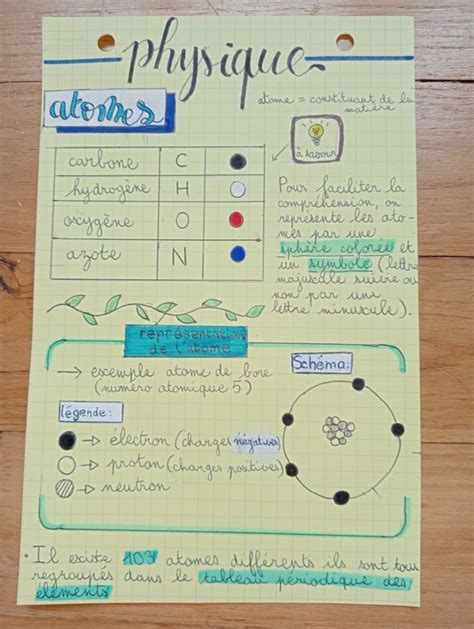 physique
atomes
atome = constituant de la
matière
à savoir
carbone C
hydrogène H
oxygène O
azote N
Pour faciliter la
compréhension, on
représente les ato-
mes par une
sphère colorée et
un symbole (lettre
majuscule suivie ou
non par une
lettre minuscule).
représentation
de l'atome
→ exemple atome de bore
(numéro atomique 5)
Schéma:
légende:
→ électron (charges négatives)
→ proton (charges positives)
→ neutron
• Il existe 103 atomes différents ils sont tous
regroupés dans le tableau périodique des
éléments